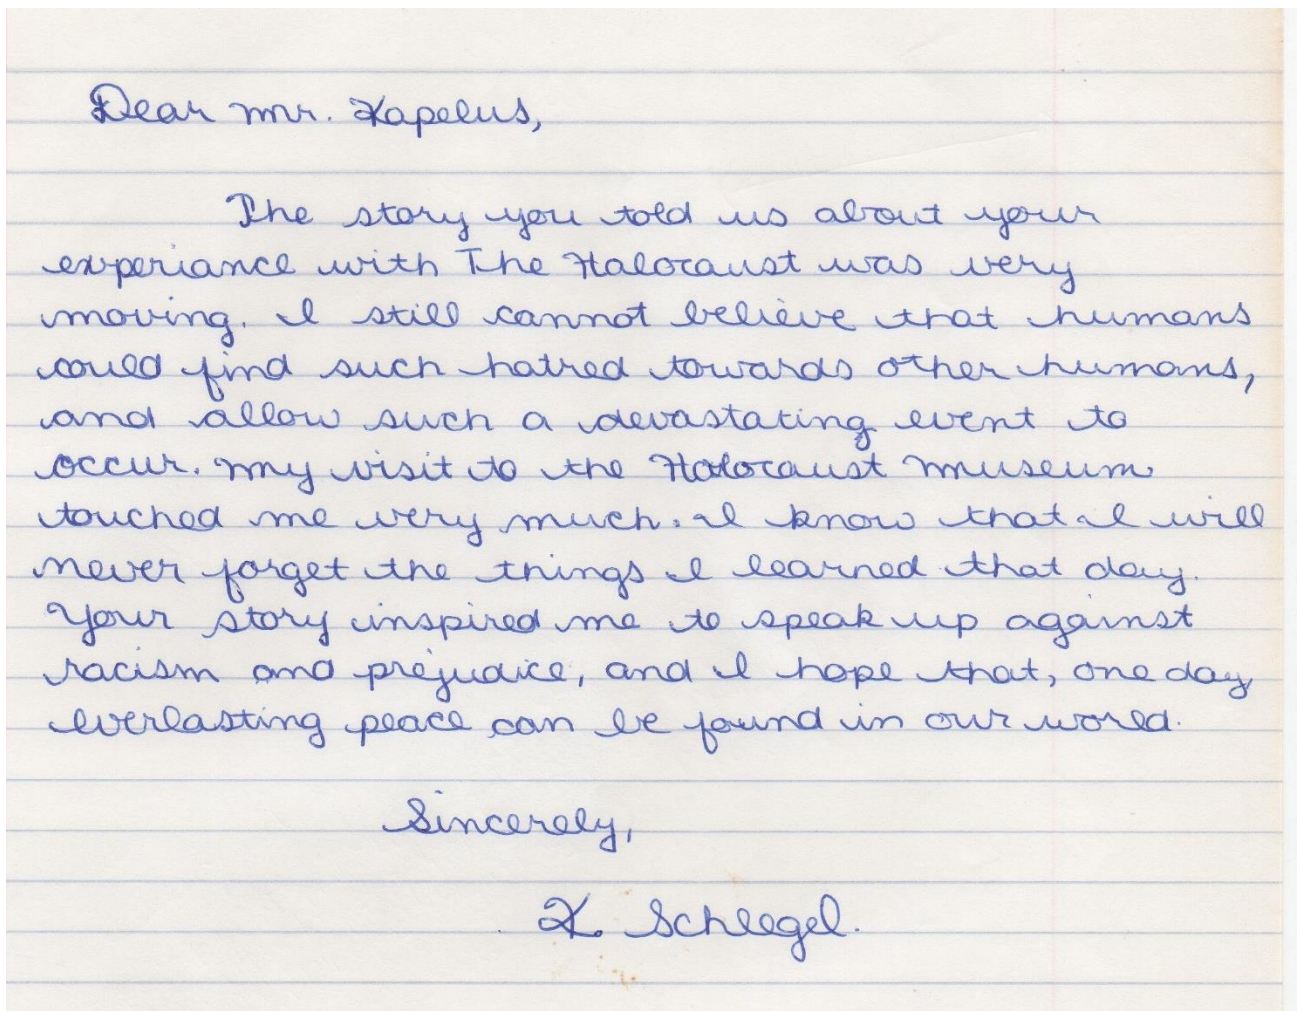 Dear Mr. Kapelus,
The story you told us about your
experiance with The Halocaust was very
moving. I still cannot believe that humans
could find such hatred towards other humans,
and allow such a devastating event to
occur. My visit to the Holocaust Museum
touched me very much. I know that I will
never forget the things I learned that day.
Your story inspired me to speak up against
racism and prejudice, and I hope that, one day
everlasting peace can be found in our world.
Sincerely,
K. Schlegel.